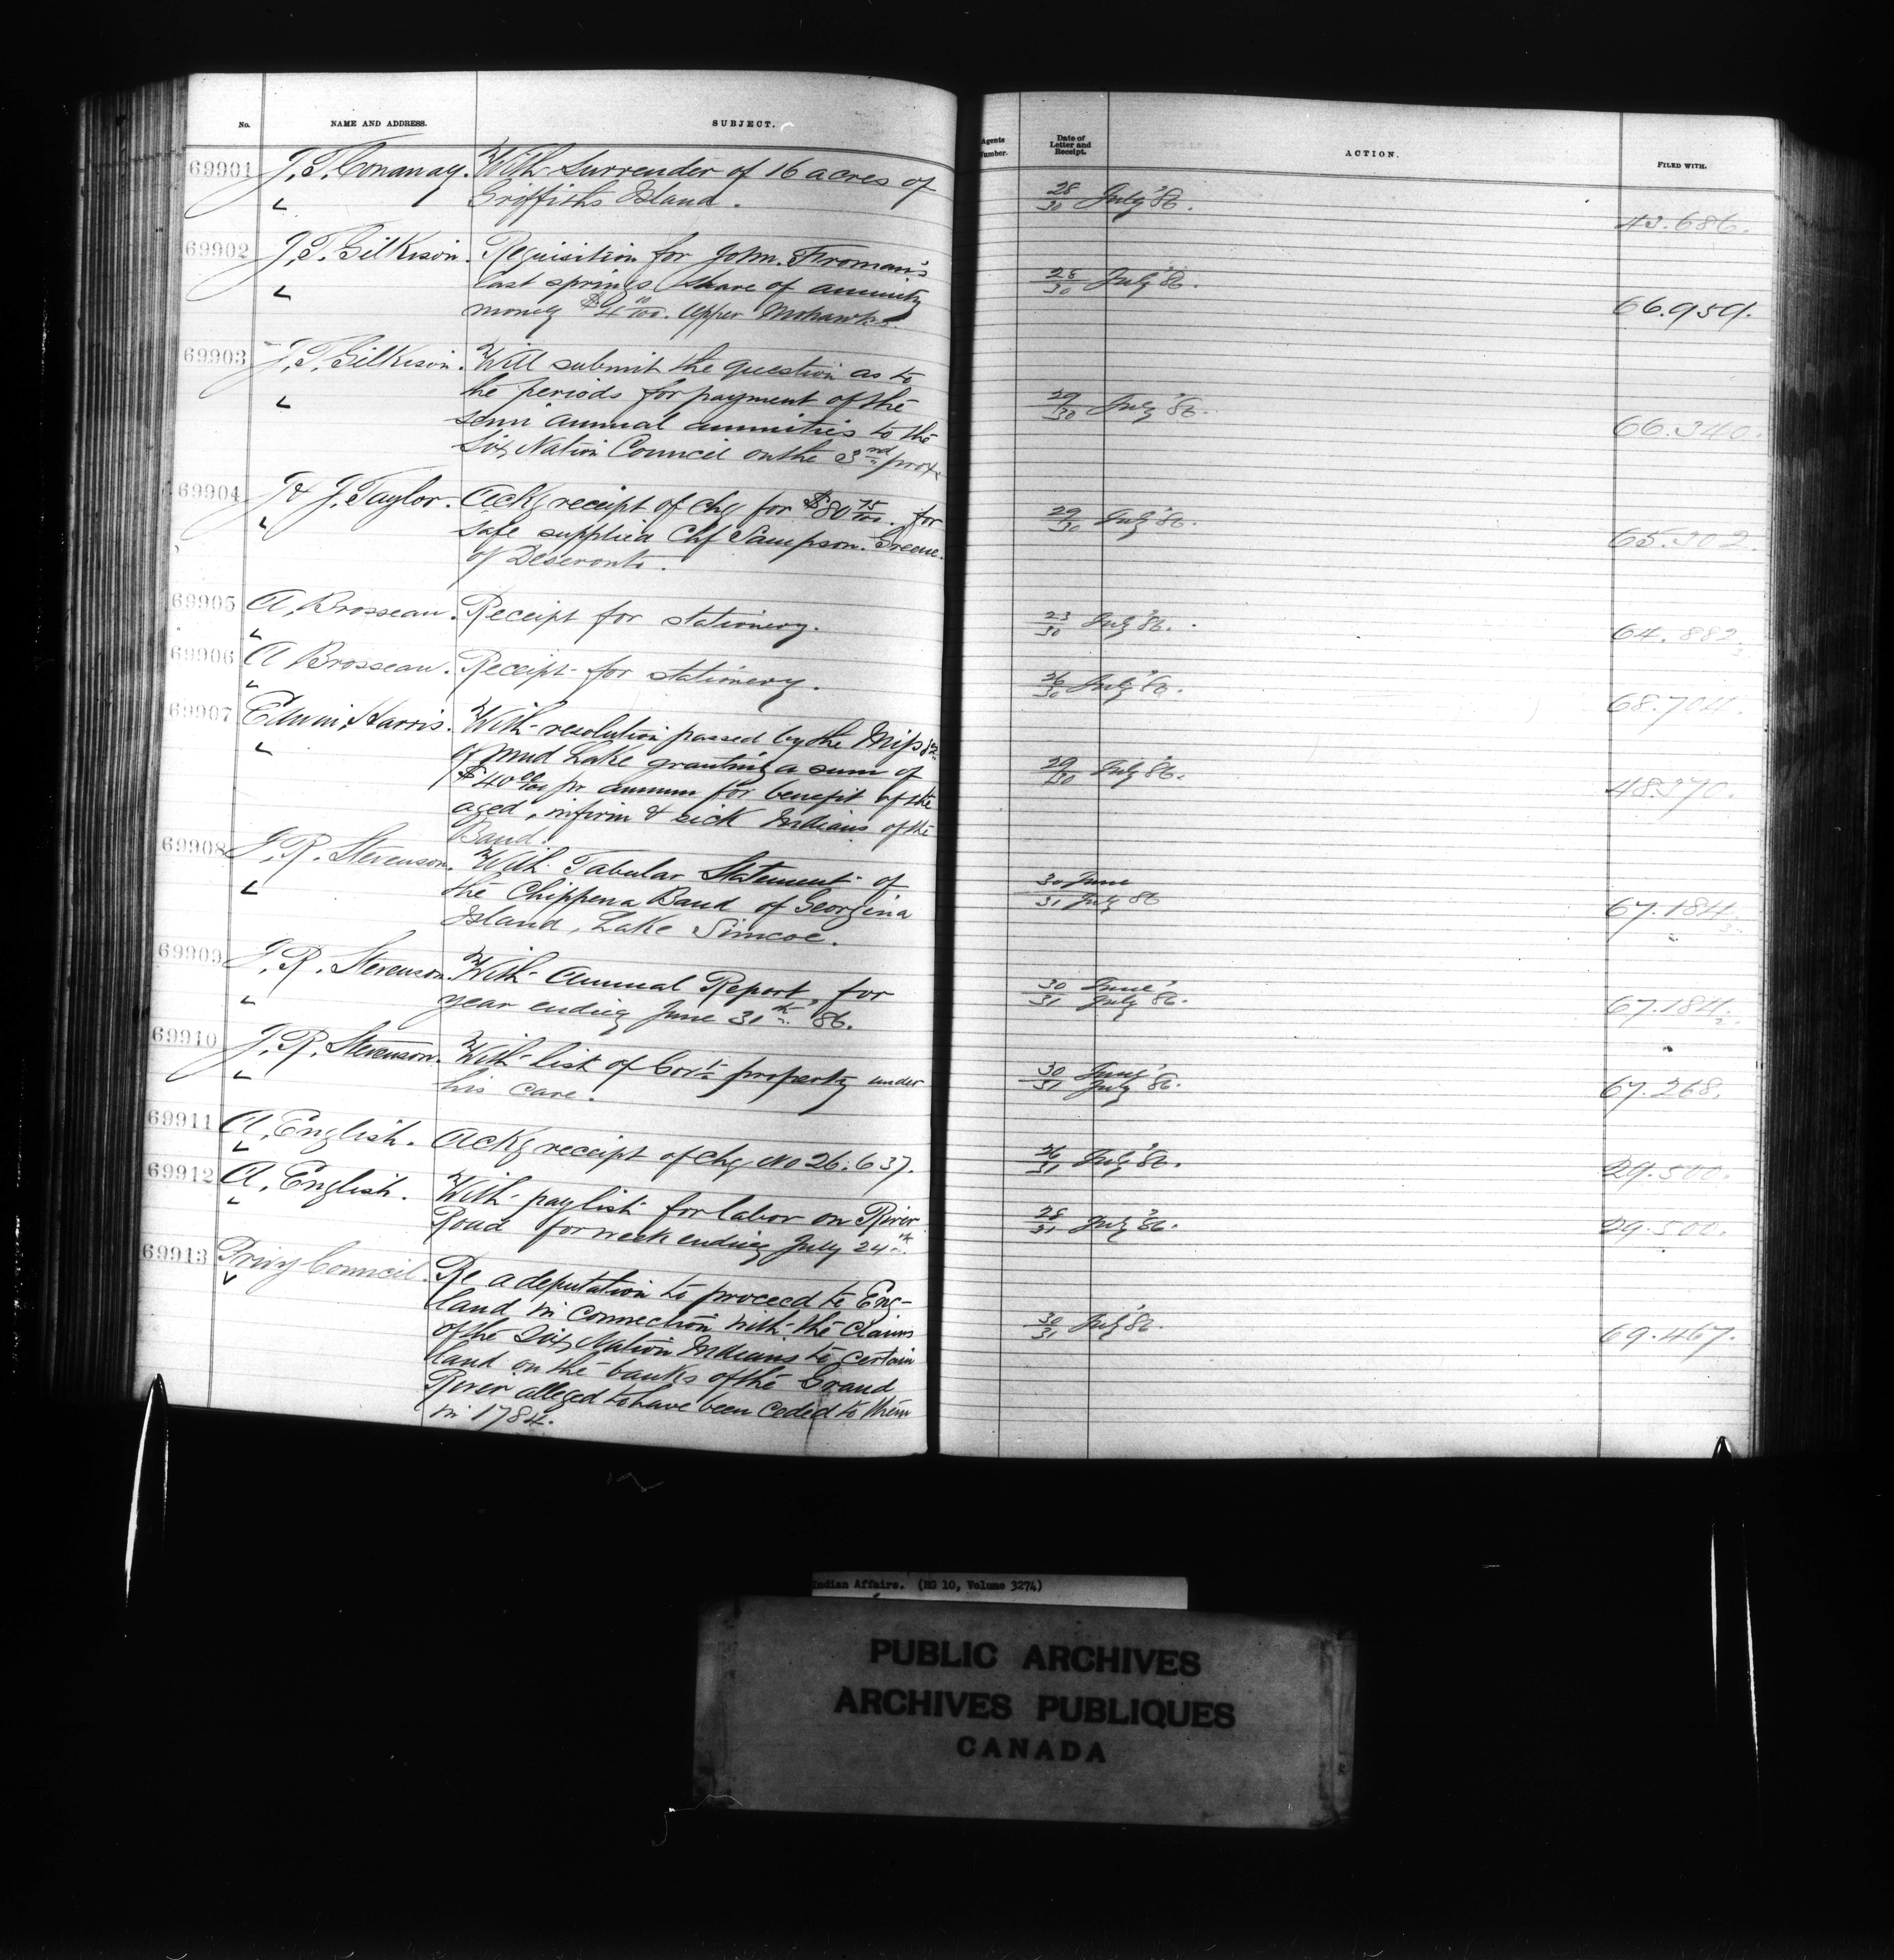 No. NAME AND ADDRESS. SUBJECT.
69901 J. T. Conaway. With Surrender of 16 acres of
Griffiths Island.
69902 J. T. Gilkison. Requisition for John Froman's
last springs share of annuity
money $4 10/100. Upper Mohawks.
69903 J. T. Gilkison. Will submit the question as to
the periods for payment of the
semi annual annuities to the
Six Nation Council on the 3rd prox
69904 J & J. Taylor. Ackg receipt of chq for $80 75/100. for
safe supplied Chf Sampson Greene
of Deseronto.
69905 A. Brosseau. Receipt for stationery.
69906 A Brosseau. Receipt for stationery.
69907 Edwin Harris. With resolution passed by the
of Mud Lake granting a sum of
$40 00/100 pr annum for benefit of the
aged, infirm & sick Indians of the
Band.
69908 J. R. Stevenson. With Tabular Statement of
the Chippewa Band of Georgina
Island, Lake Simcoe.
69909 J. R. Stevenson. With Annual Report, for
year ending June 31th 86.
69910 J. R. Stevenson. With list of Govt property under
his care.
69911 A. English. Ackg receipt of chq No 26.637.
69912 A. English. With paylist for labor on River
Road for week ending July 24th
69913 Privy Council. Re a deputation to proceed to Eng-
land in connection with the claims
of the Six Nation Indians to certain
land on the banks of the Grand
River alleged to have been ceded to them
in 1784.
Agents Number. Date of Letter and Receipt. ACTION. FILED WITH.
28/30 July '86. 43.686.
28/30 July '86. 66.959.
29/30 July '86. 66.340.
29/30 July '86. 65.302.
23/30 July '86. 64.882.
26/30 July '86. 68.704.
29/30 July '86. 48.370.
30 June
31 July 86 67.184.
30 June
31 July '86. 67.184.
30 June
31 July '86. 67.268.
26/31 July '86. 29.500.
28/31 July '86. 29.500.
30/31 July '86. 69.467.
Indian Affairs. (RG 10, Volume 3274)
PUBLIC ARCHIVES
ARCHIVES PUBLIQUES
CANADA